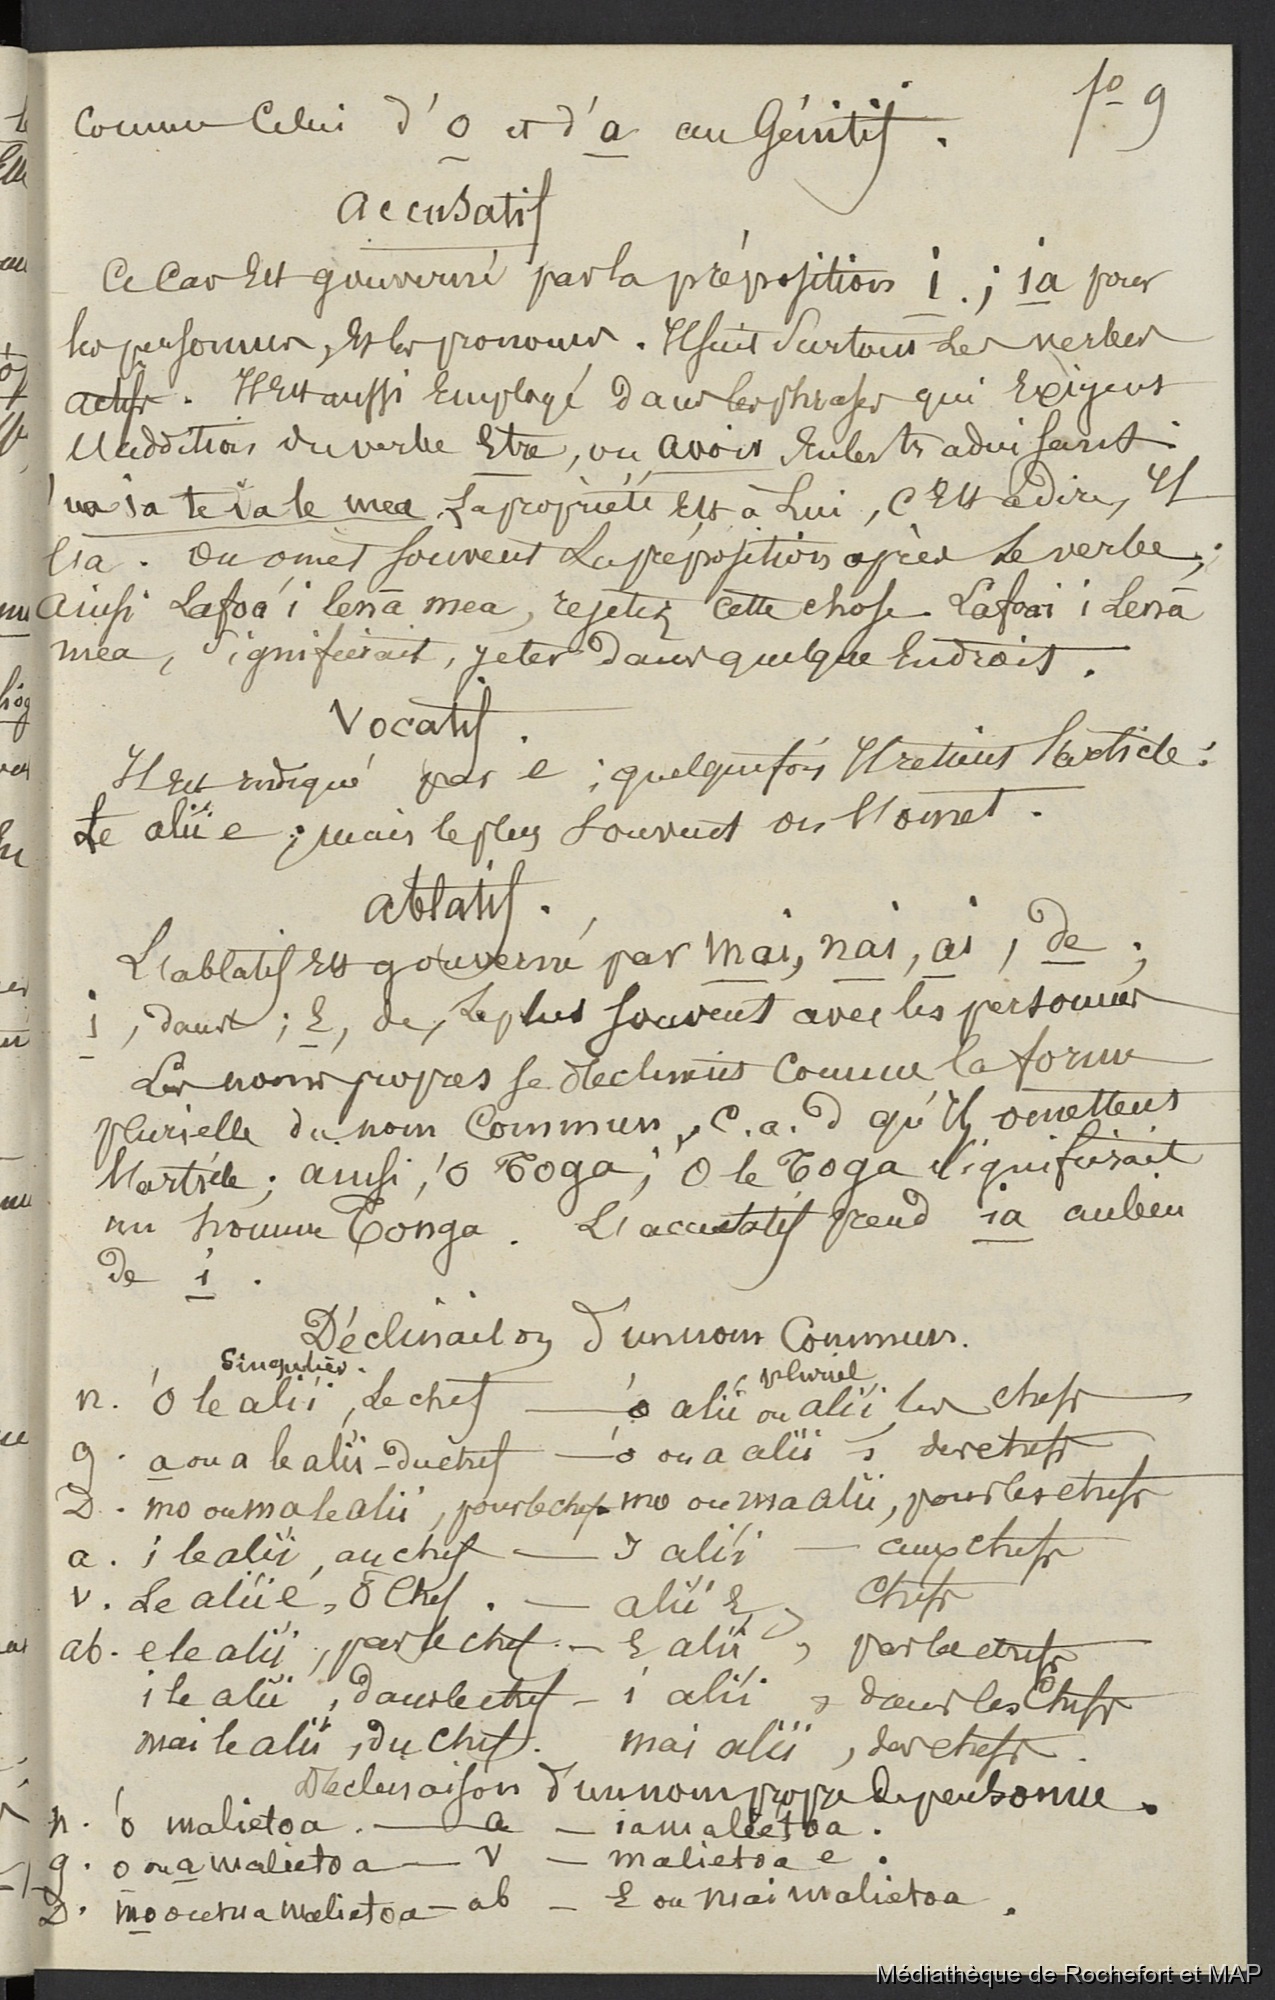 fo 9
comme Celui d'o et d'a au Génitif.
Accusatif
Ce Cas Est gouverné par la préposition i.; ia pour
les personnes, et les pronoms. Il suit surtout les verbes
actifs. Il Est aussi Employé dans les phrases qui Exigent
l'addition du verbe Etre, ou avoir En les traduisant:
ia te ia le mea, La propriété Est à Lui, C'Est à dire, Il
l'a. On omet souvent La préposition après le verbe;
Ainsi Lafoa'i lenā mea, rejetez cette chose. Lafoai i Lenā
mea, signifierait, jeter dans quelque Endroit.
Vocatif.
Il Est indiqué par e; quelquefois Il retient l'article:
Le alii e; mais le plus Souvent on l'omet.
Ablatif.
L'ablatif Est gouverné par mai, nai, ai, de;
i, dans; E, de, Le plus souvent avec les personnes
Les noms propres se déclinent Comme la forme
plurielle du nom Commun, C.a.d qu'Ils omettent
l'article; ainsi, 'o Toga; 'O le Toga signifierait
un homme Tonga. L'accusatif prend ia au lieu
de i.
Déclinaison d'un nom Commun.
Singulier. pluriel
n. 'O le alii, Le chef — 'o alii ou alii, les chefs
g. a ou a le alii - Du chef — 'o ou a alii, des chefs
D. mo ou ma le alii, pour le chef. mo ou ma alii, pour les chefs
a. i le alii, au chef — I alii — aux chefs
v. Le alii é, ō Chef. — alii E, Chefs
ab. e le alii, par le chef. — E alii, par les chefs
i le alii, dans le chef — i alii, dans les Chefs
mai le alii, du chef. mai alii, des chefs.
Déclinaison d'un nom propre de personne.
n. 'o malietoa. — a — ia malietoa.
g. o ou a malietoa — v — malietoa e.
D. mo ou ma malietoa — ab — E ou mai malietoa.
Médiathèque de Rochefort et MAP